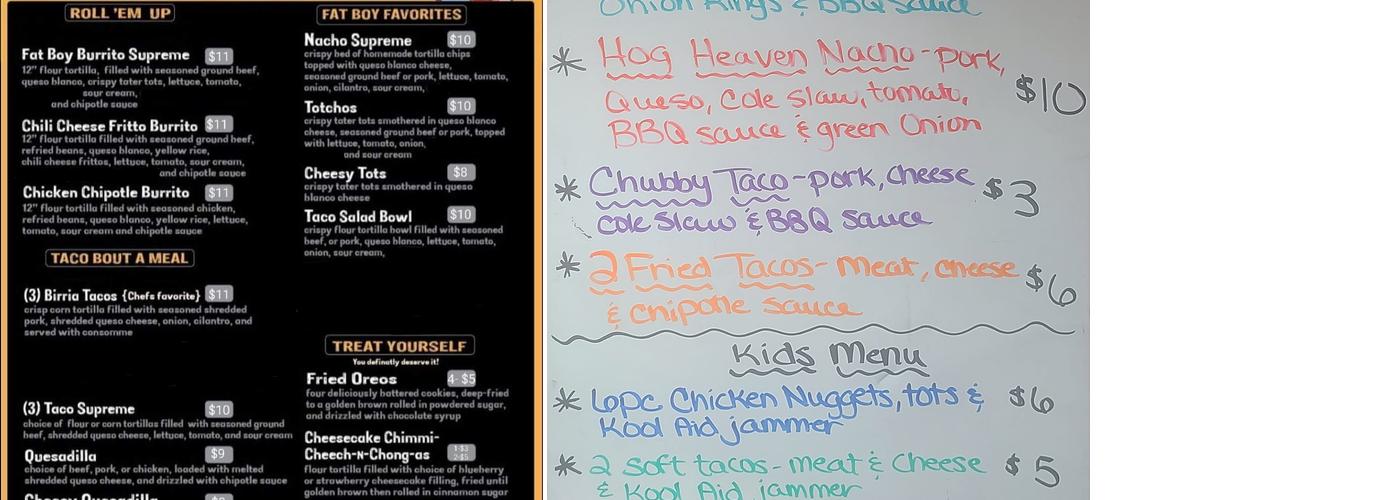 ROLL 'EM UP
Fat Boy Burrito Supreme $11
12" flour tortilla, filled with seasoned ground beef,
queso blanco, crispy tater tots, lettuce, tomato,
sour cream,
and chipotle sauce
Chili Cheese Fritto Burrito $11
12" flour tortilla filled with seasoned ground beef,
refried beans, queso blanco, yellow rice,
chili cheese frittos, lettuce, tomato, sour cream,
and chipotle sauce
Chicken Chipotle Burrito $11
12" flour tortilla filled with seasoned chicken,
refried beans, queso blanco, yellow rice, lettuce,
tomato, sour cream and chipotle sauce
TACO BOUT A MEAL
(3) Birria Tacos {Chefs favorite} $11
crisp corn tortilla filled with seasoned shredded
pork, shredded queso cheese, onion, cilantro, and
served with consomme
(3) Taco Supreme $10
choice of flour or corn tortillas filled with seasoned ground
beef, shredded queso cheese, lettuce, tomato, and sour cream
Quesadilla $9
choice of beef, pork, or chicken, loaded with melted
shredded queso cheese, and drizzled with chipotle sauce
FAT BOY FAVORITES
Nacho Supreme $10
crispy bed of homemade tortilla chips
topped with queso blanco cheese,
seasoned ground beef or pork, lettuce, tomato,
onion, cilantro, sour cream,
Totchos $10
crispy tater tots smothered in queso blanco
cheese, seasoned ground beef or pork, topped
with lettuce, tomato, onion,
and sour cream
Cheesy Tots $8
crispy tater tots smothered in queso
blanco cheese
Taco Salad Bowl $10
crispy flour tortilla bowl filled with seasoned
beef, or pork, queso blanco, lettuce, tomato,
onion, sour cream,
TREAT YOURSELF
You definatly deserve it!
Fried Oreos 4-$5
four deliciously battered cookies, deep-fried
to a golden brown rolled in powdered sugar,
and drizzled with chocolate syrup
Cheesecake Chimmi-
Cheech-N-Chong-as 1-$3
2-$5
flour tortilla filled with choice of blueberry
or strawberry cheesecake filling, fried until
golden brown then rolled in cinnamon sugar
Onion Rings & BBQ Sauce
* Hog Heaven Nacho - pork,
Queso, Cole Slaw, tomato, $10
BBQ sauce & green Onion
* Chubby Taco - pork, cheese $3
cole slaw & BBQ Sauce
* 2 Fried Tacos - meat, cheese $6
& chipotle sauce
Kids Menu
* 6pc Chicken Nuggets, tots & $6
Kool Aid jammer
* 2 soft tacos - meat & cheese $5
& Kool Aid jammer